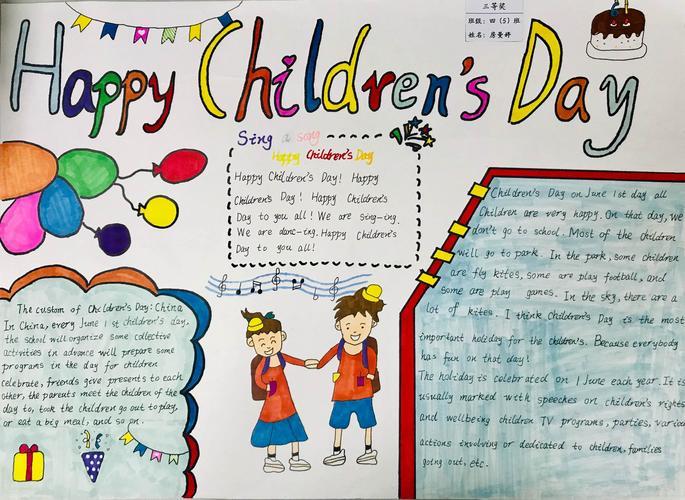 三等奖
班级：四（5）班
姓名：房曼婷
Happy Children's Day
Sing a song
Happy Children's Day
Happy Children's Day! Happy
Children's Day! Happy Children's
Day to you all! We are sing-ing.
We are danc-ing. Happy Children's
Day to you all!
Children's Day on June 1st day all
Children are very happy. On that day, we
don't go to school. Most of the children
will go to park. In the park, some children
are fly kites, some are play football, and
some are play games. In the sky, there are a
lot of kites. I think Children's Day is the most
important holiday for the children's. Because everybody
has fun on that day!
The holiday is celebrated on 1 June each year. It is
usually marked with speeches on children's rights
and wellbeing children TV programs, parties, various
actions involving or dedicated to children, families
going out, etc.
The custom of Children's Day: China
In China, every June 1st children's day,
the school will organize some collective
activities in advance will prepare some
programs in the day for children
celebrate, friends give presents to each
other, the parents meet the children of the
day to, took the children go out to play,
or eat a big meal, and so on.